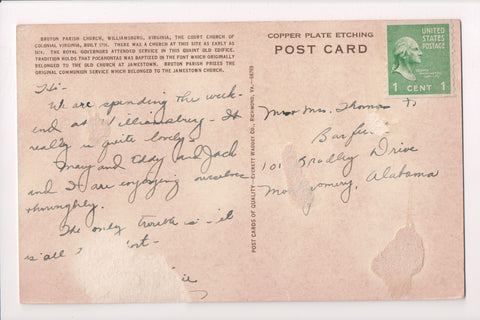 BRUTON PARISH CHURCH, WILLIAMSBURG, VIRGINIA, THE COURT CHURCH OF
COLONIAL VIRGINIA, BUILT 1715. THERE WAS A CHURCH AT THIS SITE AS EARLY AS
THE ROYAL GOVERNORS ATTENDED SERVICE IN THIS QUAINT OLD EDIFICE.
TRADITION HOLDS THAT POCAHONTAS WAS BAPTIZED IN THE FONT WHICH ORIGINALLY
BELONGED TO THE OLD CHURCH AT JAMESTOWN. BRUTON PARISH PRIZES THE
ORIGINAL COMMUNION SERVICE WHICH BELONGED TO THE JAMESTOWN CHURCH.
Hi—
We are spending the week-
end at Williamsburg — It
really is quite lovely.
Mary and Eddy and Jack
and I are enjoying ourselves
thoroughly.
The only trouble is — it
is all
COPPER PLATE ETCHING
POST CARD
UNITED
STATES
POSTAGE
1 CENT 1
POST CARDS OF QUALITY.—EVERETT WADDEY CO., RICHMOND, VA.
Mrs. Thomas
101 Bradley Drive
Montgomery, Alabama